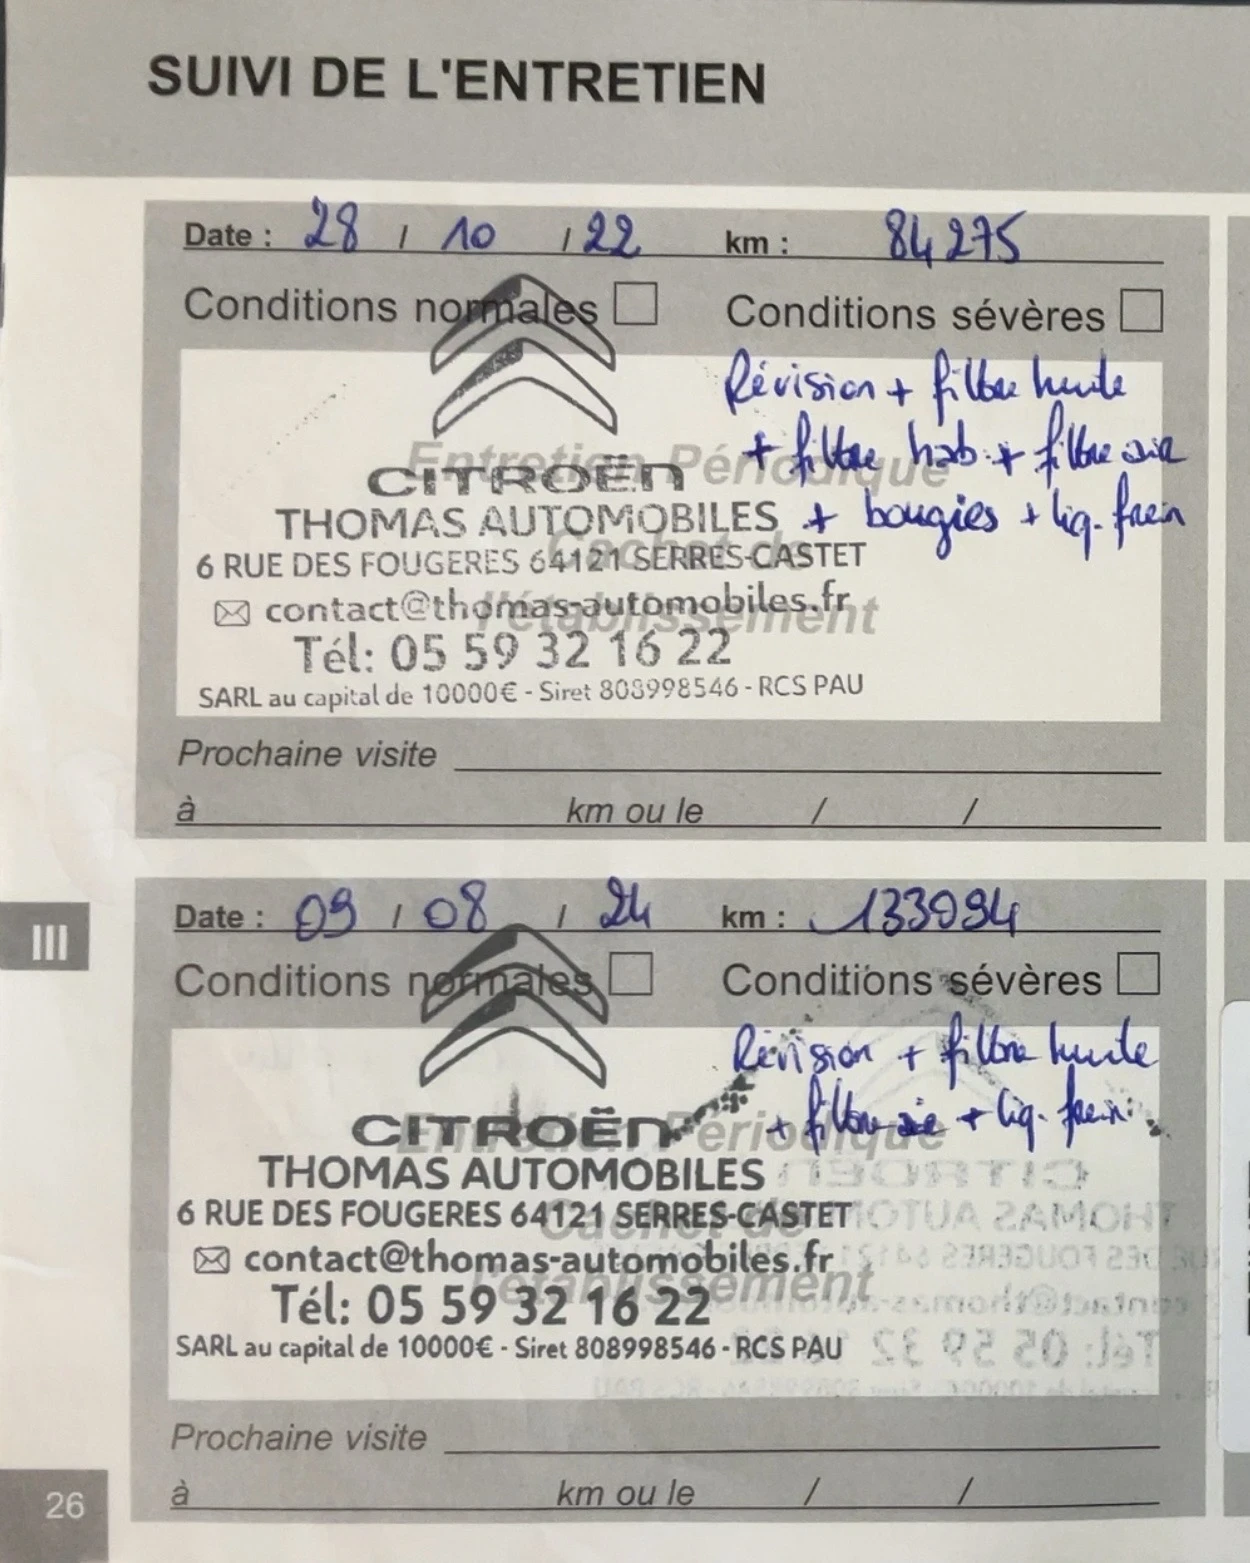 SUIVI DE L'ENTRETIEN
Date : 28 / 10 / 22 km : 84275
Conditions normales Conditions sévères
Révision + filtre huile
+ filtre hab. + filtre air
+ bougies + liq. frein
Entretien Périodique
Cachet de
l'établissement
CITROËN
THOMAS AUTOMOBILES
6 RUE DES FOUGERES 64121 SERRES-CASTET
contact@thomas-automobiles.fr
Tél: 05 59 32 16 22
SARL au capital de 10000€ - Siret 808998546 - RCS PAU
Prochaine visite
à km ou le / /
III
Date : 09 / 08 / 24 km : 133094
Conditions normales Conditions sévères
Révision + filtre huile
+ filtre air + liq. frein
Entretien Périodique
Cachet de
l'établissement
CITROËN
THOMAS AUTOMOBILES
6 RUE DES FOUGERES 64121 SERRES-CASTET
contact@thomas-automobiles.fr
Tél: 05 59 32 16 22
SARL au capital de 10000€ - Siret 808998546 - RCS PAU
Prochaine visite
à km ou le / /
26